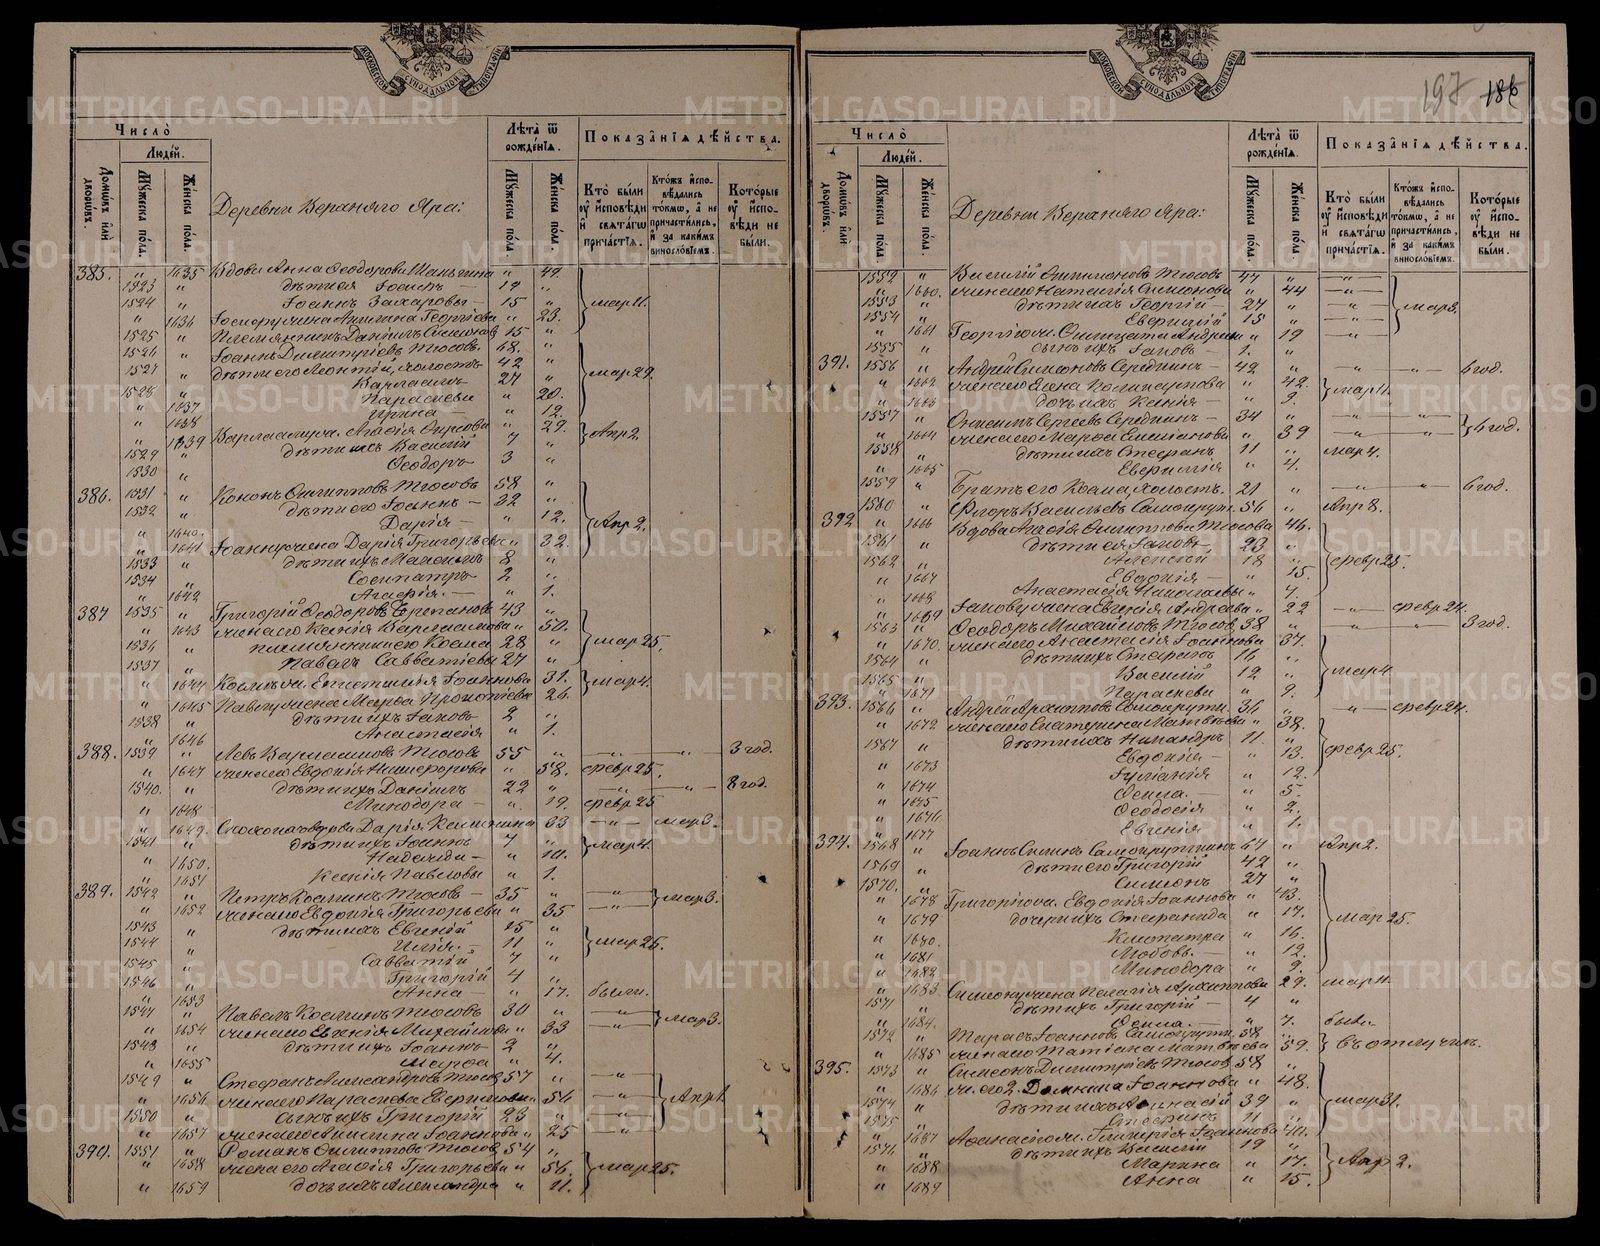 МОСКОВСКОЙ СИНОДАЛЬНОЙ ТИПОГРАФІИ
Число̀
Людей.
Домѡвъ или дворѡвъ.
Мꙋжеска пола.
Женска пола.
Деревни Вераняго Яра:
Лѣта ѿ рожденїѧ.
Мꙋжеска пола.
Женска пола.
Показанїѧ дѣйства.
Кто были ꙋ исповѣди и свѧтагѡ причастїѧ.
Ктожъ исповѣдались токмѡ, а не причастились, и за какимъ винословїемъ.
Которые ꙋ исповѣди не были.
385. " 1635 Вдова Анна Ѳеодорова " 49.
1523 " дѣти ея Іосифъ 19 "
1524 " Іоаннъ Захаровы 15 " мар 11.
" 1636 Георгіева " 23.
1525 " Племянникъ Даніилъ 15 "
1526 " Іоаннъ Димитріевъ Тюсовъ 68. "
1527 " дѣти его Леонтій, холостъ 42 " мар 29.
1528 " Варлаамъ 27 "
" 1637 Параскева " 20.
" 1638 Ирина " 12.
" 1639 Агаѳія " 29. Апр 2.
1529 " дѣти ихъ Василій 7 "
1530 " Ѳеодоръ 3 "
386. 1531 " Кононъ Филипповъ Тюсовъ 58 "
1532 " дѣти его Іоаннъ 32 "
" 1640. Дарія " 12. Апр 2.
" 1641 Іоанну жена Дарія Григорьева " 32.
1533 " дѣти ихъ 8 "
1534 " Сосипатръ 2 "
" 1642 Агаѳія " 1.
387 1535 " Григорій Ѳеодоровъ 43 "
" 1643 жена его Ксенія Варлаамова " 50.
1536 " племянники его Козма 28 " мар 25.
1537 " Павелъ Савватіевы 27 "
" 1644 Іоаннова 31. мар 4.
" 1645 Павлу жена Марѳа Прокопіева 26.
1538 " дѣти ихъ Іаковъ 2 "
" 1646 Анастасія " 1.
388. 1539 " Левъ Варлаамовъ Тюсовъ 55 " " 3 год.
" 1647 жена его Евдокія Никифорова " 58. февр 25.
1540. " дѣти ихъ Даніилъ 22 " " 8 год.
" 1648 Минодора " 19. февр 25
" 1649. Дарія 33 " мар 3.
1541 " дѣти ихъ Іоаннъ 7 " мар 4.
" 1650. Надежда " 10.
" 1651 Ксенія Павловы " 1.
389. 1542 " Петръ Козминъ Тюсовъ 35 " "
" 1652 жена его Евдокія Григорьева " 35 " мар 3.
1543 " дѣти ихъ Евгеній 15 "
1544 " Илія 11 " мар 25.
1545 " Савватій 7 "
1546 " Григорій 4 "
" 1653 Анна " 17. были.
1547 " Павелъ Козминъ Тюсовъ 30 " "
" 1654 жена его Евгенія Михайлова " 33 " мар 3.
1548 " дѣти ихъ Іоаннъ 2 "
" 1655 Марѳа " 4.
1549 " Стефанъ Александровъ Тюсов 57 " "
" 1656 жена его Параскева " 56 " Апр 1.
1550 " сынъ ихъ Григорій 23 " "
" 1657 жена его Іоаннова " 25 "
390. 1551 " Романъ Филипповъ Тюсов 54 "
" 1658 жена его Агаѳія Григорьева " 56. мар 25.
" 1659 дочь ихъ Александра " 11.
МОСКОВСКОЙ СИНОДАЛЬНОЙ ТИПОГРАФІИ
197
Число̀
Людей.
Домѡвъ или дворѡвъ.
Мꙋжеска пола.
Женска пола.
Деревни Вераняго Яра:
Лѣта ѿ рожденїѧ.
Мꙋжеска пола.
Женска пола.
Показанїѧ дѣйства.
Кто были ꙋ исповѣди и свѧтагѡ причастїѧ.
Ктожъ исповѣдались токмѡ, а не причастились, и за какимъ винословїемъ.
Которые ꙋ исповѣди не были.
1552 " Василій Тюсовъ 47 " "
" 1660. жена его Наталія Симонова " 44 "
1553 " дѣти ихъ Георгій 27 " " мар 3.
1554 " 15 " "
" 1661 " 19 "
1555 " сынъ ихъ Іаковъ 1. "
391. 1556 " Андрей Симоновъ Середкинъ 42 " " " 6 год.
" 1662 жена его Елена Поликарпова " 42. мар 11.
" 1663 дочь ихъ Ксенія " 9.
1557 " Онисимъ Сергеевъ Середкинъ 34 " " "
" 1664 жена его Марѳа " 39 " " 6 год.
1558 " дѣти ихъ Стефанъ 11 " мар 4.
" 1665 " 4.
1559 " Братъ его Козма, холостъ. 21 " " " 6 год.
1560 " Флоръ Васильевъ 56 " Апр 8.
392 " 1666 Вдова Агаѳія Филиппова Тюсова 46.
1561 " дѣти ея Іаковъ 23 "
1562 " Алексій 18 " февр 25.
" 1667 Евдокія " 15.
" 1668 Анастасія Николаевы " 7.
" 1669 Іакову жена Евгенія Андреева " 22 " февр 24.
1563 " Ѳеодоръ Михайловъ Тюсов 38 " " " 3 год.
" 1670. жена его Анастасія Іоаннова 37.
1564 " дѣти ихъ Стефанъ 16 "
1565 " Василій 12 " мар 4
" 1671 Параскева " 9.
393. 1566 " Андрей Архиповъ 36 " " февр 24.
" 1672 жена его Екатерина Матвѣева " 38.
1567 " дѣти ихъ Никандръ 11. "
" 1673 Евдокія " 13. февр 25.
" 1674 Іуліанія " 12.
" 1675 Ѳекла " 5.
" 1676 Ѳеодосія " 2.
" 1677 Евгенія " 1.
394. 1568 " Іоаннъ 67 " Апр 2.
1569 " дѣти его Григорій 42 "
1570. " Симеонъ 27 "
" 1678 Григорію ж. Евдокія Іоаннова " 43.
" 1679 дочери ихъ Стефанида " 17. мар 25.
" 1680. Клеопатра " 16.
" 1681 Любовь " 12.
" 1682 Минодора " 9.
" 1683. Симеону жена Пелагія Архиппова 29. мар 11.
1571 " дѣти ихъ Григорій 4 "
" 1684. Ѳекла " 7. были.
1572 " Тарасъ Іоанновъ 58 "
" 1685 жена его Татіана Матвѣева " 59. въ отлучкѣ.
395. 1573 " Симеонъ Димитріевъ Тюсов 58 "
" 1686 ж. его 2. Домника Іоаннова " 48.
1574 " дѣти ихъ Аѳанасій 39 " мар 31.
1575 " 11 "
" 1687 Аѳанасію ж. Гликерія Іоаннова 40.
1576 " дѣти ихъ Василій 19 "
" 1688 Марина " 17. Апр 2.
" 1689 Анна " 15.
METRIKI.GASO-URAL.RU